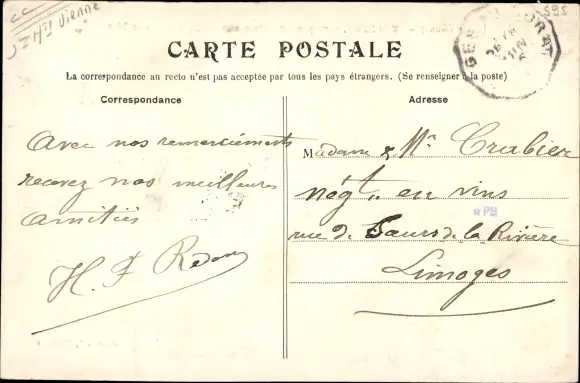 Hte Vienne
595
CARTE POSTALE
La correspondance au recto n'est pas acceptée par tous les pays étrangers. (Se renseigner à la poste)
Correspondance
Avec nos remerciements
recevez nos meilleures
amitiés
H. F Redon
Adresse
Madame & Mr Crabier
négt. en vins
PB
rue de Sœurs de la Rivière
Limoges